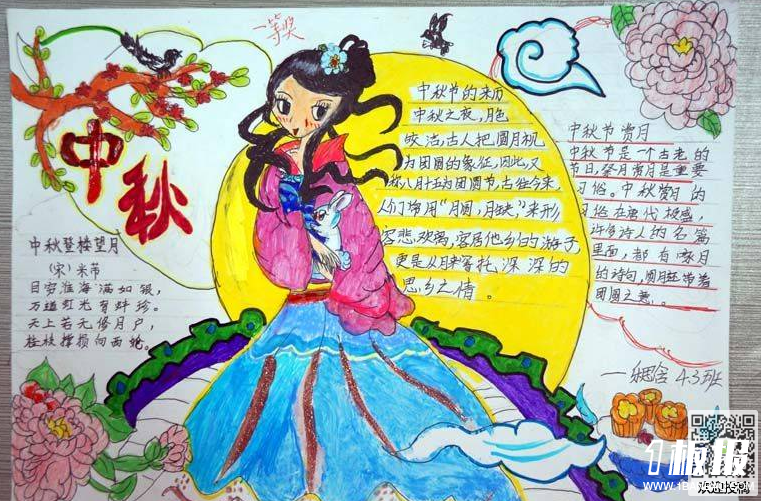 一等奖
中秋
中秋登楼望月
(宋) 米芾
目穷淮海满如银，
万道虹光育蚌珍。
天上若无修月户，
桂枝撑损向西轮。
中秋节的来历
中秋之夜，月色
皎洁，古人把圆月视
为团圆的象征，因此，又
称八月十五为团圆节，古往今来，
人们常用“月圆，月缺”来形
容悲欢离，客居他乡的游子
更是以月来寄托深深的
思乡之情。
中秋节赏月
中秋节是一个古老的
节日，祭月赏月是重要
习俗。中秋赏月的
习俗在唐代极盛，
许多诗人的名篇
里面，都有咏月
的诗句，
团圆之意。
4.3班
板报